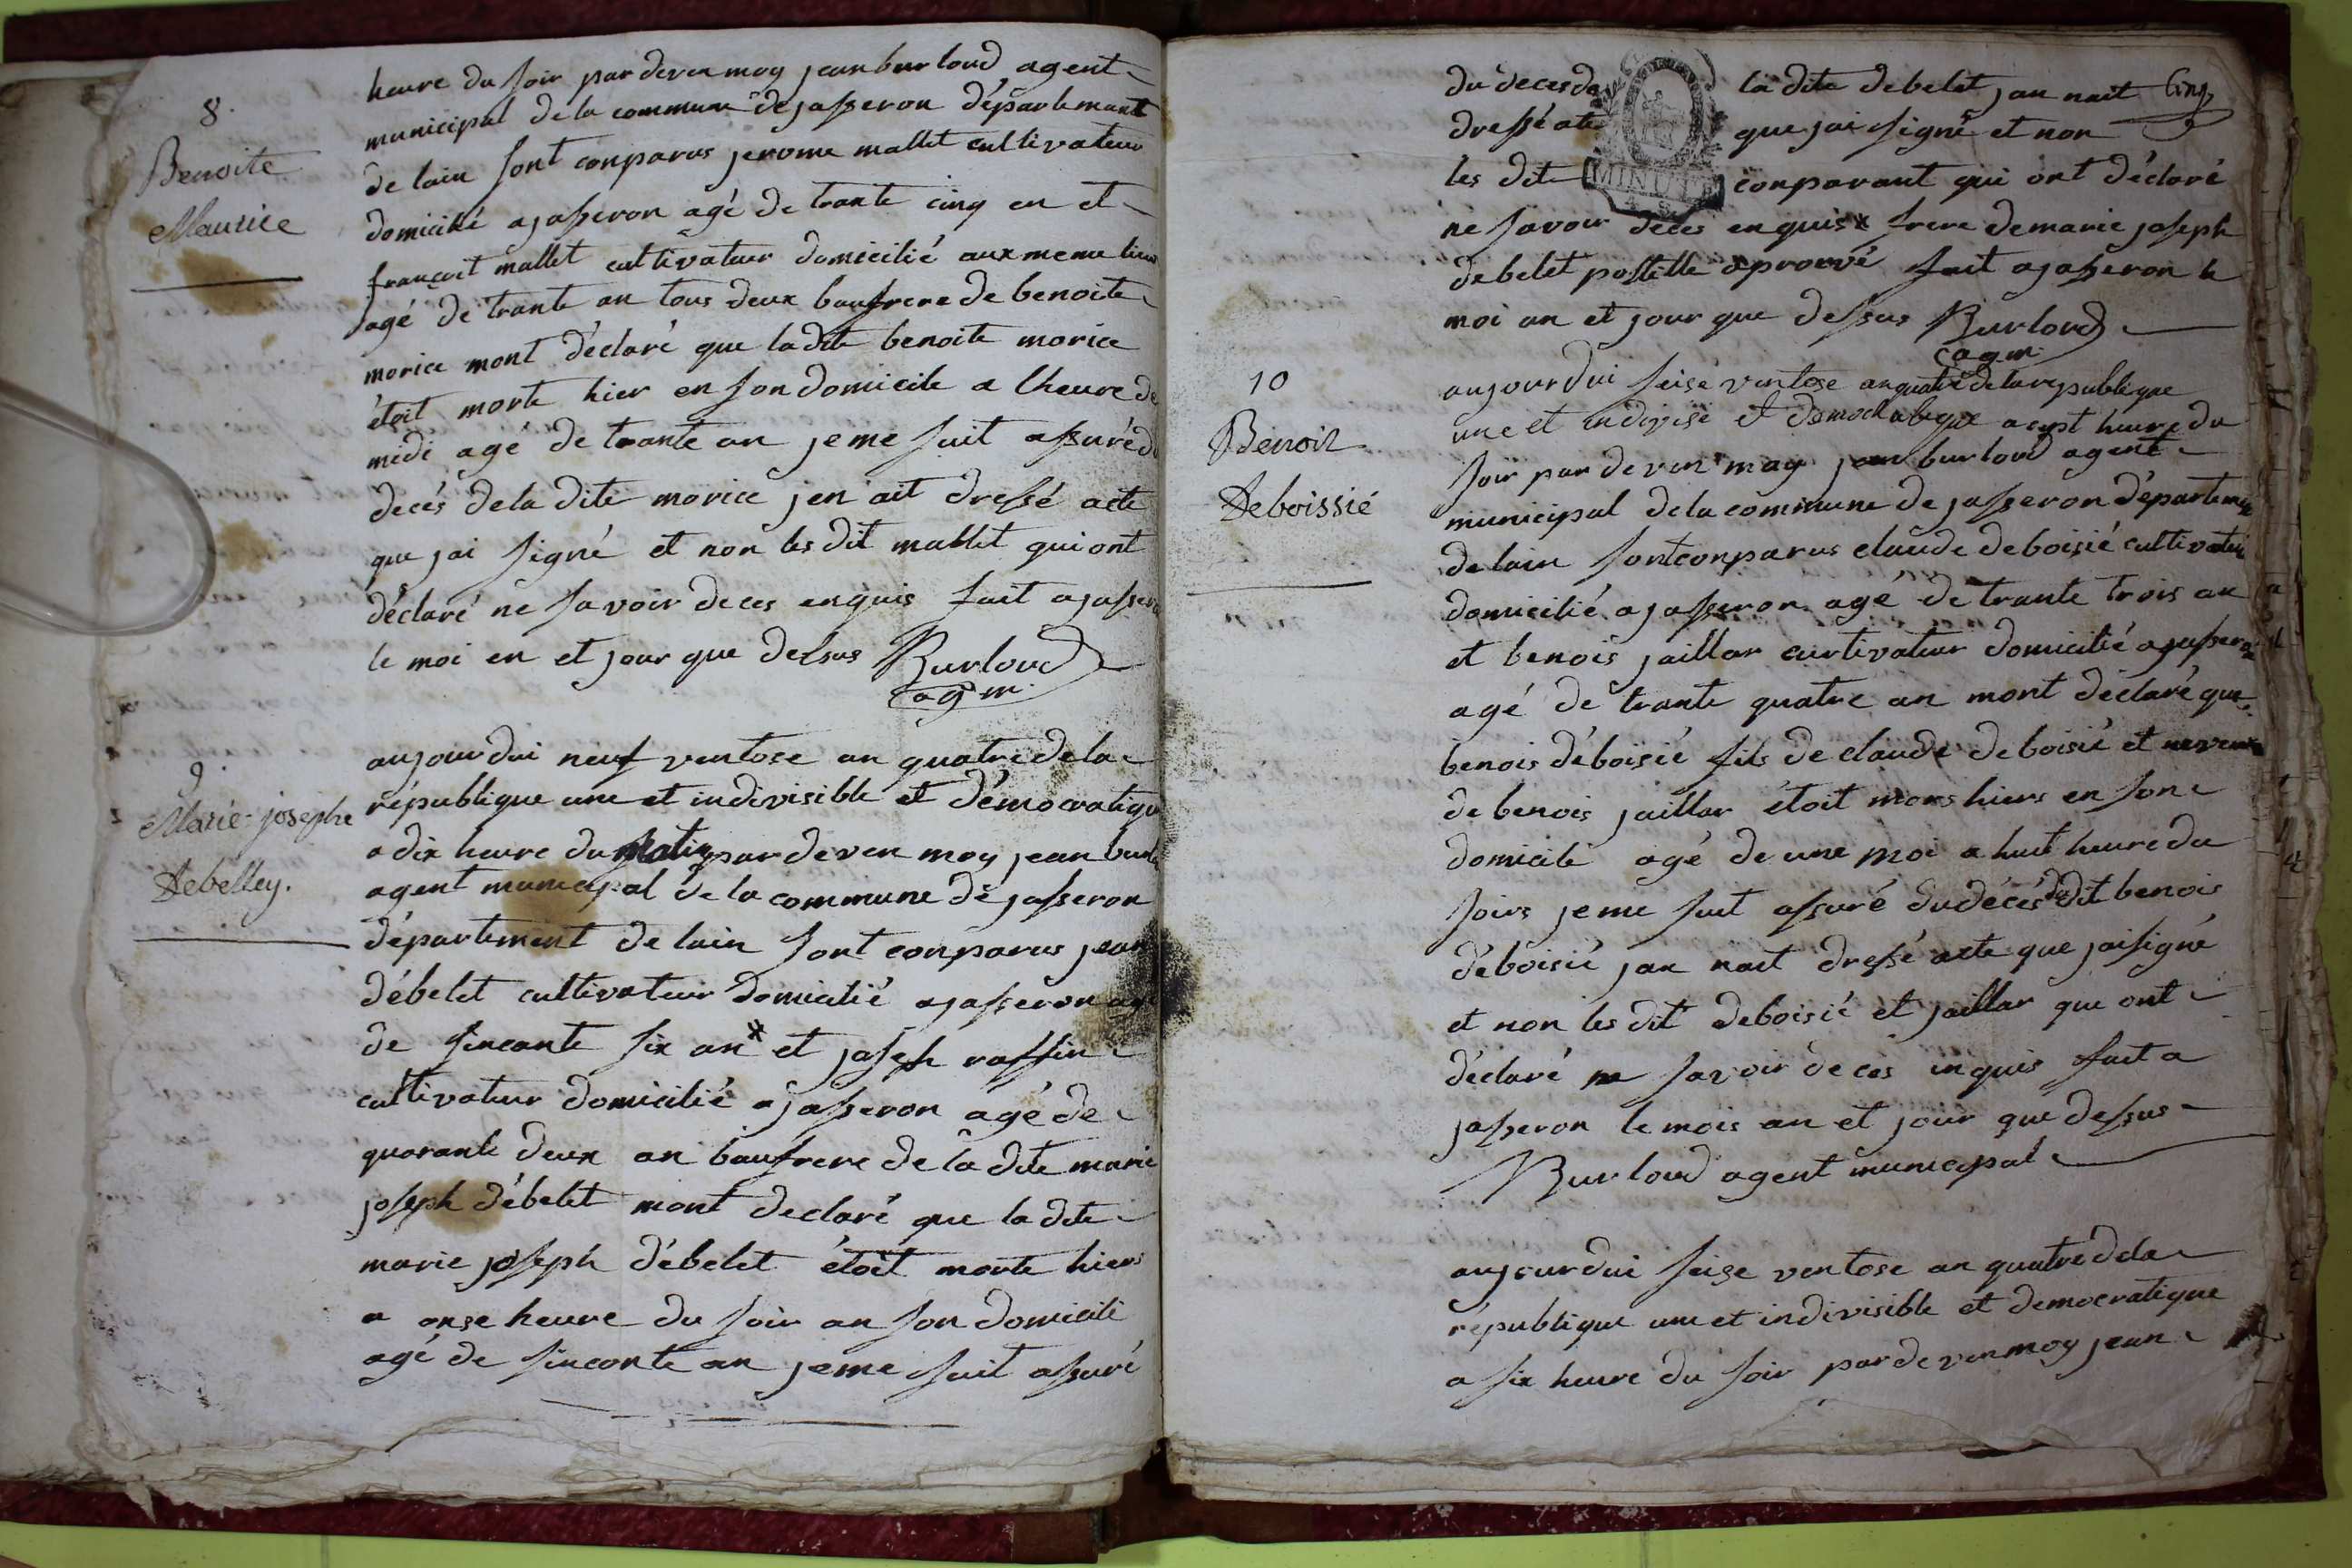 8.
Benoite
Maurice
heure du soir par deven moy jean burloud agent
municipal de la commune de jasseron département
de lain sont conparus jerome mallet cultivateur
domicilié a jasseron agé de trante cinq en et
françoit mallet cultivatuer domicilié aux meme lieu
agé de trante an tous deux baufrere de benoite
morice mont déclaré que ladite benoite morice
étoit morte hier en son domicile a lheure de
midi agé de trante an je me suit assuré du
decés de la dite morice jen ait dressé acte
que jai signé et non les dit mallet qui ont
déclaré ne savoir de ces enquis fait a jasseron
le moi en et jour que desus Burloud
agm
9
Marie-josephe
Debelley.
aujourdui neuf ventose an quatre de la
république une et indivisible et démocratique
a dix heure du matin par deven moy jean burlo
agent municipal de la commune de jasseron
département de lain sont conparus jean
débelet cultivateur domicilié a jasseron agé
de sincante six an* et joseph raffin
cultivatuer domicilié a jasseron agé de
quarante deux an baufrere de la dite marie
joseph débelet mont declaré que la dite
marie joseph débelet étoit morte hiers
a onse heure du soir an son domicili
agé de sinconte an je me suit assuré
du deces de la dite debelet jan nait Cinq
dressé ate que jai signé et non
les dit conparant qui ont déclaré
MINUTE
ne savoir deces enquis * frere de marie joseph
debelet postille aprouvé fait a jasseron le
moi an et jour que dessus Burloud
agm
10
Benoit
Deboissié
aujourdui seise ventose an quatre de la republique
une et indivise et a cept heure du
soir par deven moy jean burloud agent
municipal de la commune de jasseron département
de lain sont conparus claude deboisié cultivateur
domicilié a jasseron agé de trante trois an
et benois jaillar curtivatuer domicilié a jasseron
agé de trante quatre an mont déclaré que
benois déboisié fils de claude deboisié et neveux
de benois jaillar étoit mors hiers en son
domicile agé de une moi a huit heure du
soirs je me suit assuré du décés dudit benois
déboisié jan nait dressé acte que jai signé
et non les dit deboisié et jaillar que ont
déclaré ne savoir de ces inquis fait a
jasseron le mois an et jour que dessus
Burloud agent municipal
aujourdui seise ventose an quatre dela
république une et indivisible et democratique
a six heure du soir par deven moy jean